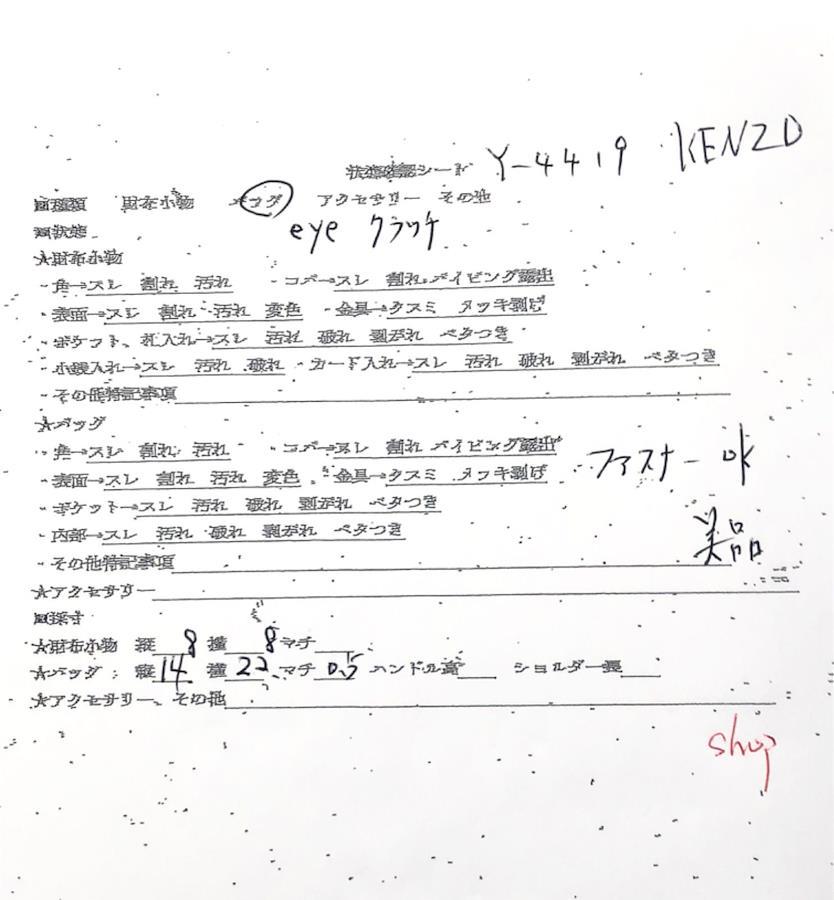 状態確認シード Y-4419 KENZO
■種類 財布小物 バッグ アクセサリー その他
■状態 eye クラッチ
★財布小物
・角→スレ 割れ 汚れ ・コバ→スレ 割れ パイピング露出
・表面→スレ 割れ 汚れ 変色 ・金具→クスミ メッキ剥げ
・ポケット、札入れ→スレ 汚れ 破れ 剥がれ ベタつき
・小銭入れ→スレ 汚れ 破れ ・カード入れ→スレ 汚れ 破れ 剥がれ ベタつき
・その他特記事項
★バッグ
・角→スレ 割れ 汚れ ・コバ→スレ 割れ パイピング露出
・表面→スレ 割れ 汚れ 変色 ・金具→クスミ メッキ剥げ ファスナー ok
・ポケット→スレ 汚れ 破れ 剥がれ ベタつき
・内部→スレ 汚れ 破れ 剥がれ ベタつき 美品
・その他特記事項
★アクセサリー
■採寸
★財布小物 縦 8 横 8 マチ
★バッグ: 縦 14 横 22 マチ 0.5 ハンドル高 ショルダー長
★アクセサリー、その他
shop